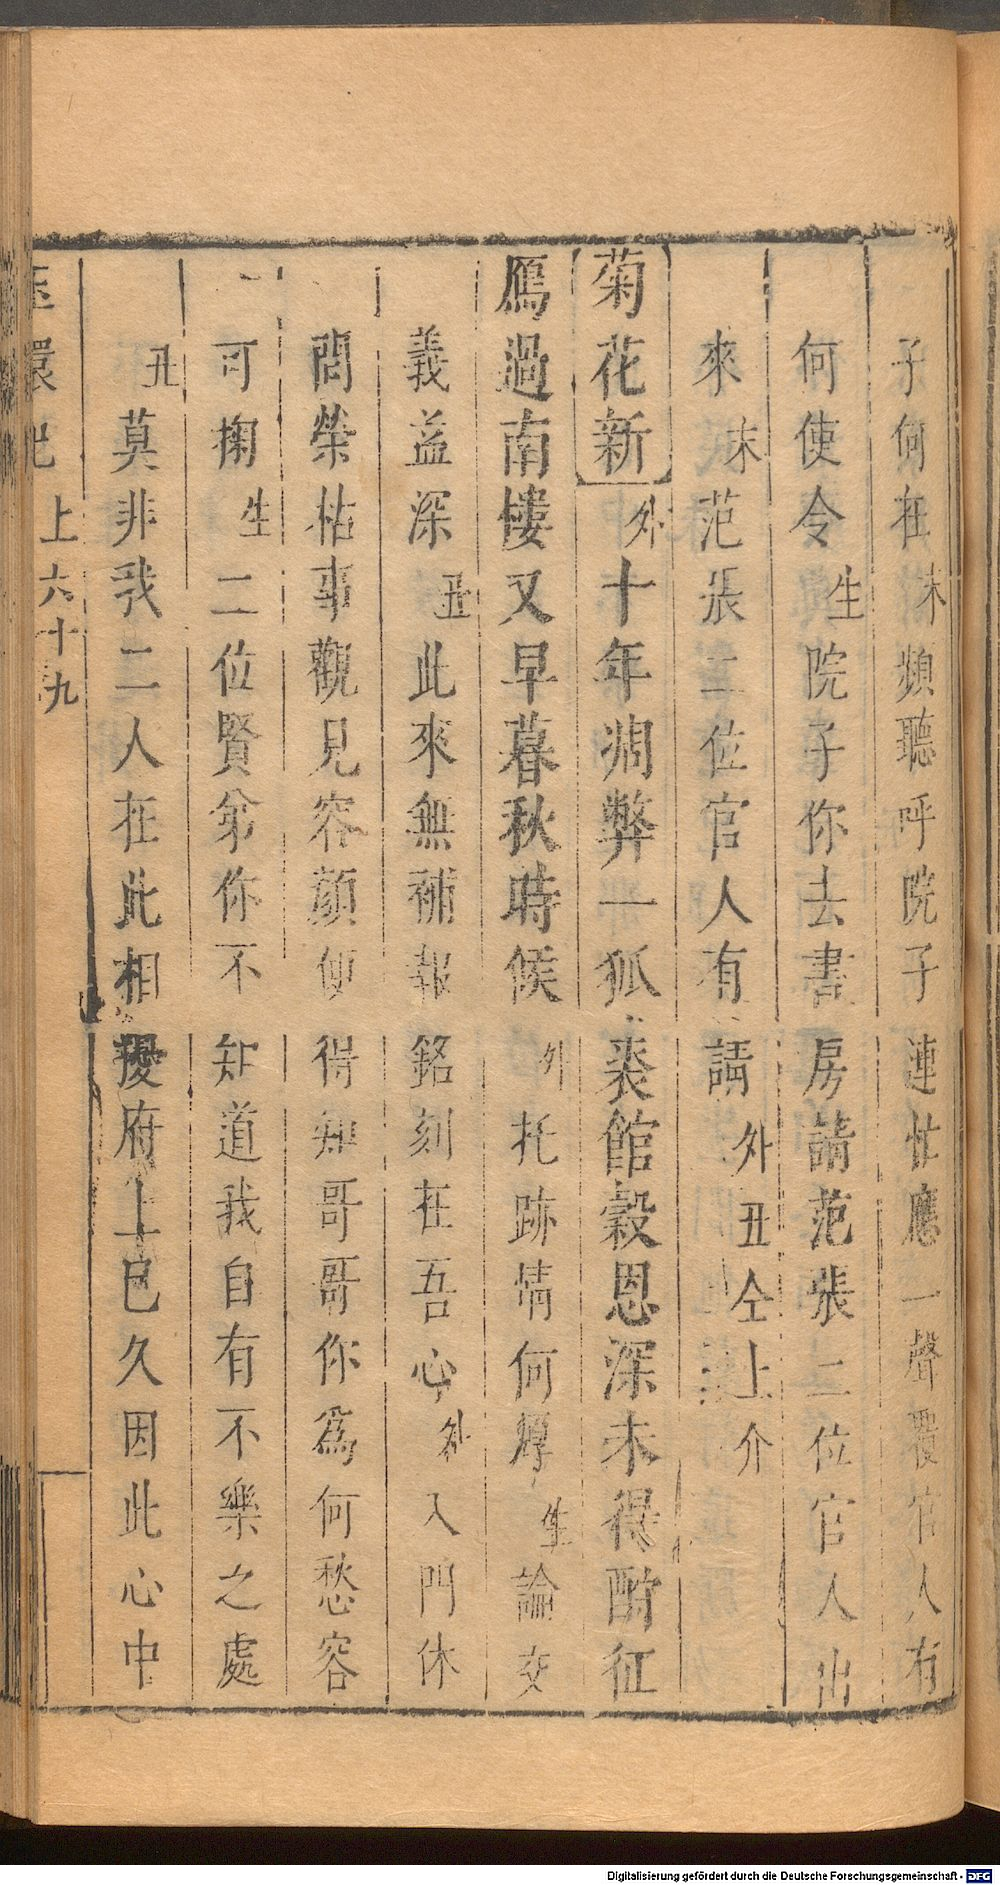 子何在末頻聽呼院子連忙應一聲覆官人有
何使令生院子你去書房請范張二位官人出
來末范張二位官人有請外丑仝上介
菊花新外十年凋弊一狐裘館穀恩深未得酧征
鴈過南樓又早暮秋時候外托跡情何厚生論交
義益深丑此來無補報銘刻在吾心外入門休
問榮枯事觀見容顏便得知哥哥你為何愁容
可掬生二位賢弟你不知道我自有不樂之處
丑莫非我二人在此相擾府上已久因此心中
玉環記 上六十九
Digitalisierung gefördert durch die Deutsche Forschungsgemeinschaft - DFG